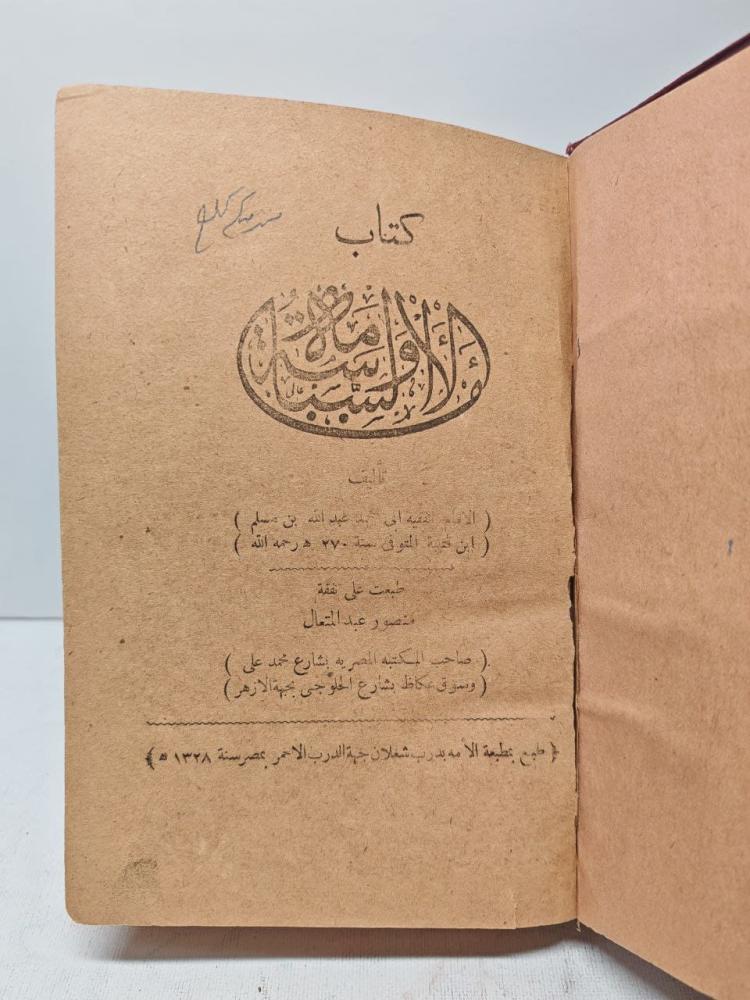 كتاب
الامامة والسياسة
تأليف
( الامام الفقيه ابى محمد عبد الله بن مسلم )
( ابن قتيبة المتوفى سنة ٢٧٠ ه رحمه الله )
طبعت على نفقة
منصور عبد المتعال
( صاحب المكتبه المصريه بشارع محمد على )
( وسوق عكاظ بشارع الحلوجى بجهة الازهر )
﴿ طبع بمطبعة الأمه بدرب شغلان جهة الدرب الاحمر بمصر سنة ١٣٢٨ ه ﴾